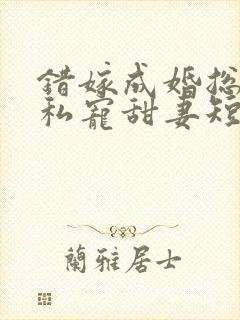 錯嫁成婚总
私寵甜妻短
蘭雅居士